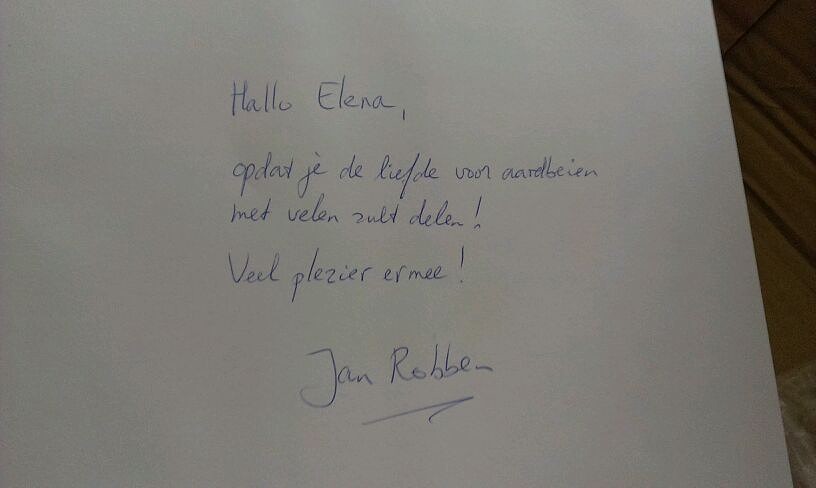 Hallo Elena,
opdat je de liefde voor aardbeien
met velen zult delen!
Veel plezier ermee!
Jan Robben